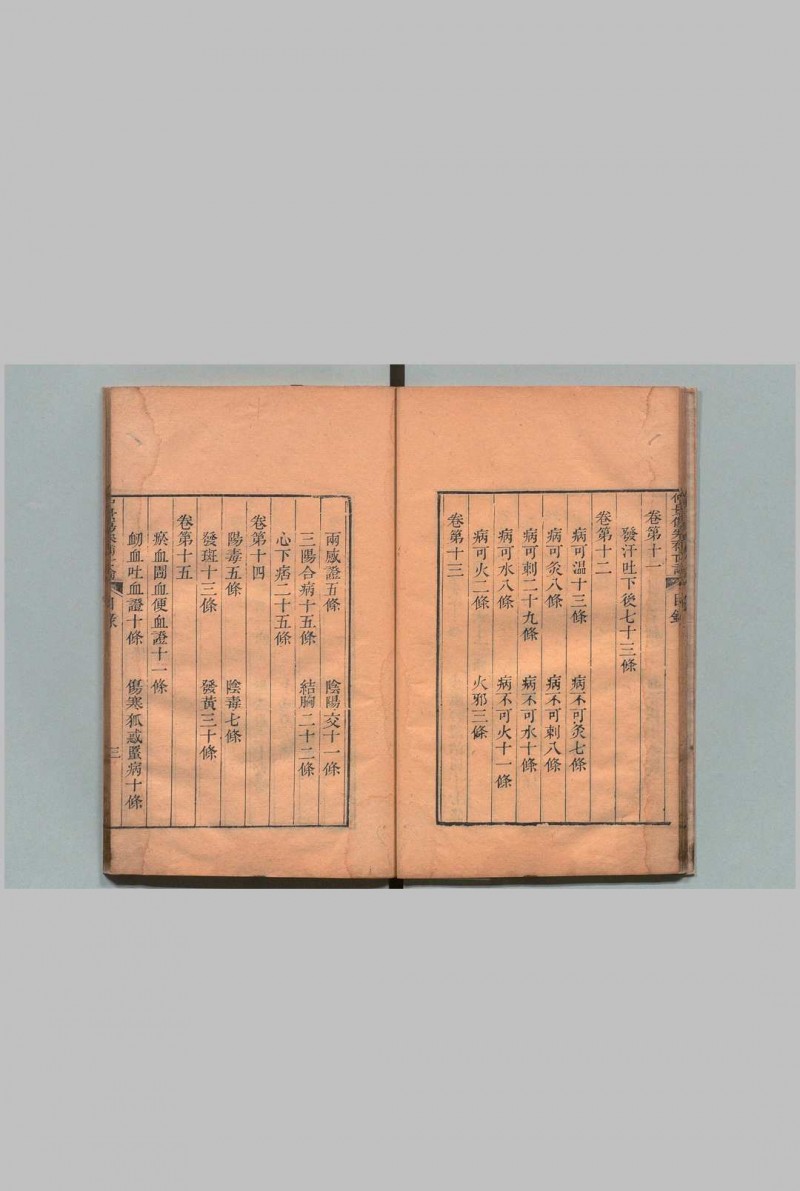 卷第十一
發汗吐下後七十三條
卷第十二
病可温十三條　病不可灸七條
病可灸八條　病不可刺八條
病可刺二十九條　病不可水十條
病可水八條　病不可火十一條
病可火二條　火邪三條
卷第十三
兩感證五條　陰陽交十一條
三陽合病十五條　結胸二十二條
心下痞二十五條
卷第十四
陽毒五條　陰毒七條
發斑十三條　發黃三十條
卷第十五
瘀血圊血便血證十一條
衂血吐血證十條　傷寒狐惑䘌病十條
目錄
三